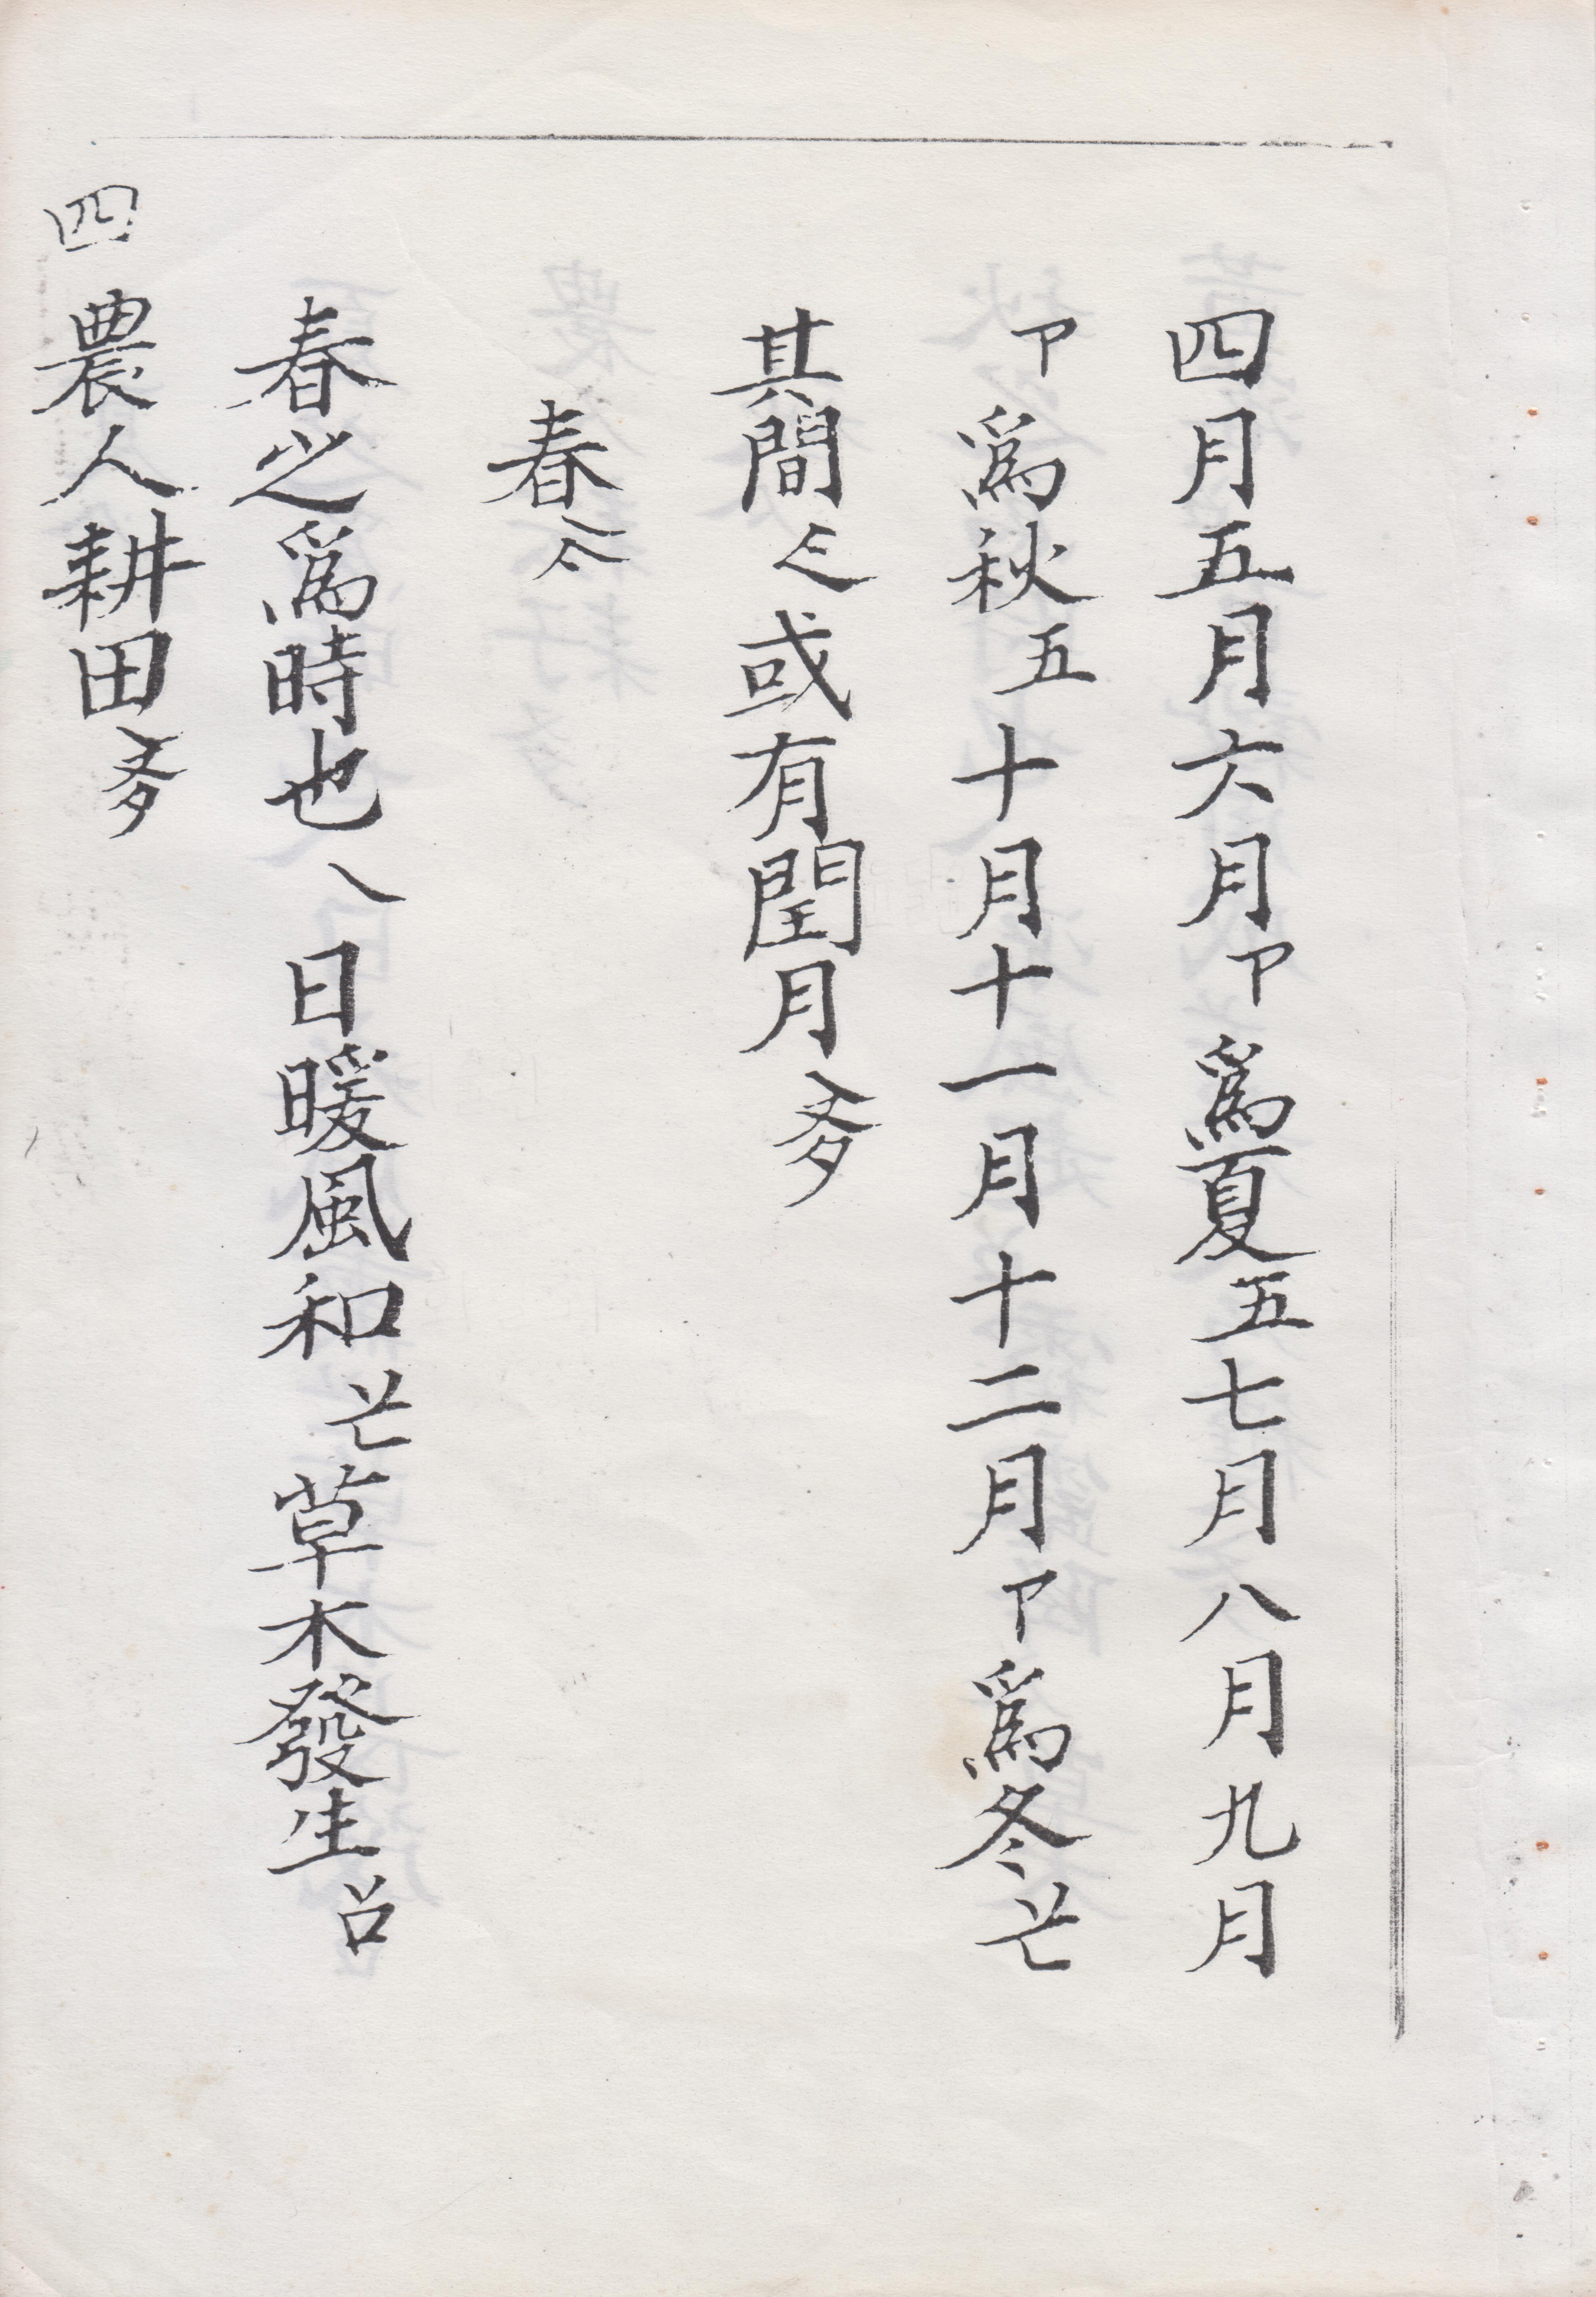 四月五月六月卩爲夏五七月八月九月
卩爲秋五十月十一月十二月卩爲冬丷匕
其間或有閏月
春
春之爲時也乀日暖風和丷匕草木發生丷口
四農人耕田